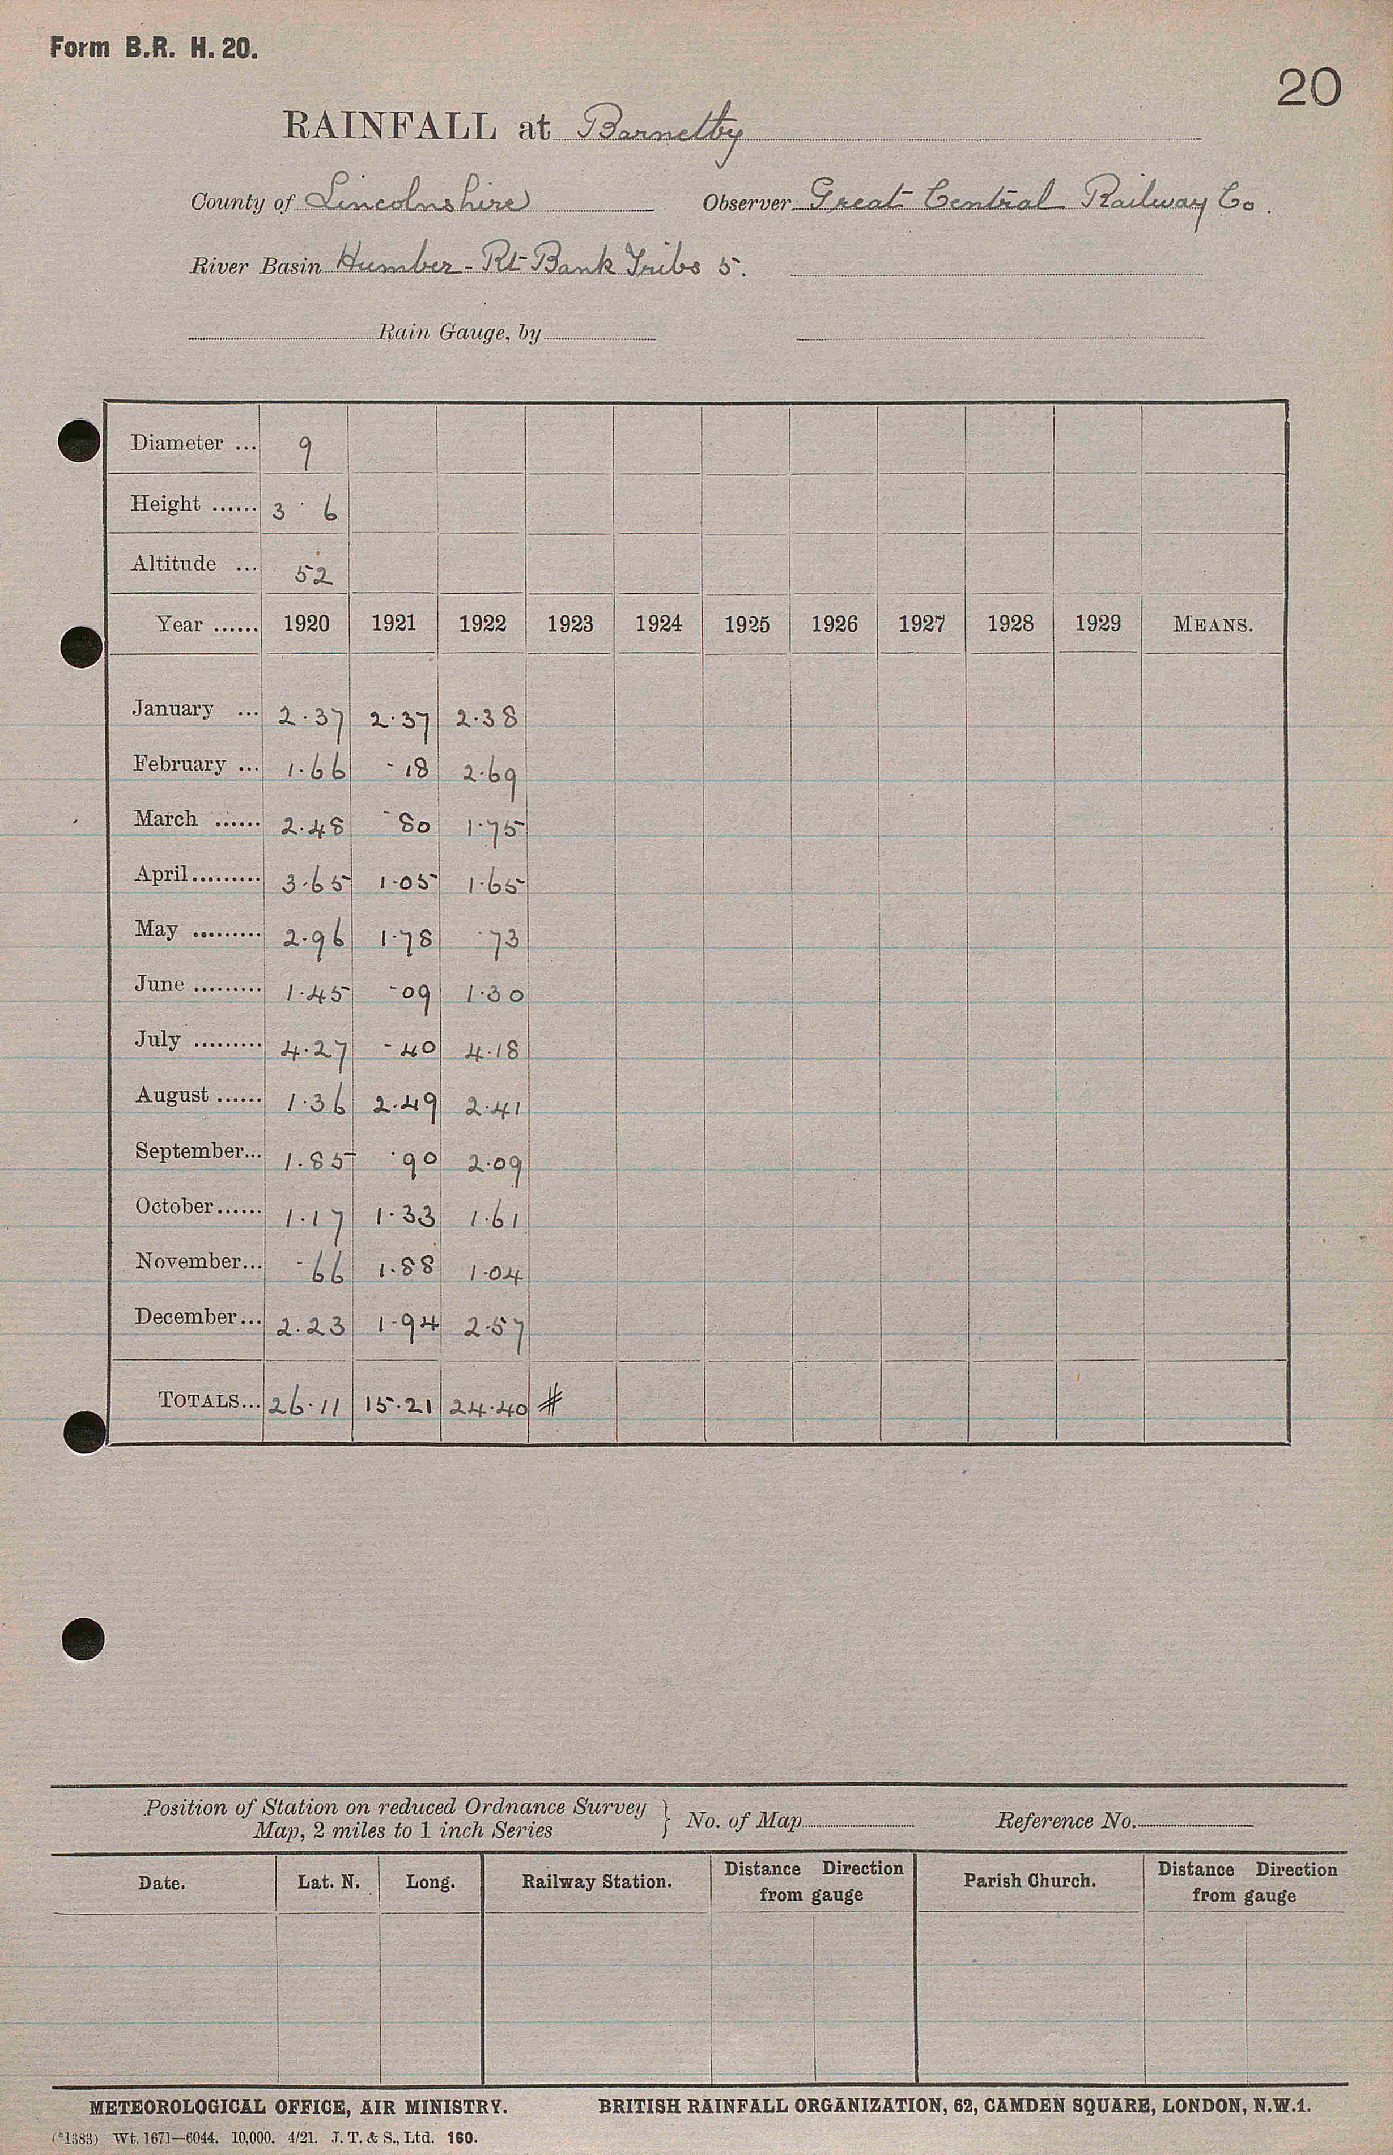 Form B.R. H. 20.
20
RAINFALL at Barnetby
County of Lincolnshire Observer Great Central Railway Co.
River Basin Humber - Rt Bank Tribs 5.
Rain Gauge, by
Diameter ... 9
Height ...... 3 · 6
Altitude ... 52
Year ...... 1920 1921 1922 1923 1924 1925 1926 1927 1928 1929 MEANS.
January ... 2.37 2.37 2.38
February ... 1.66 .18 2.69
March ...... 2.48 .80 1.75
April......... 3.65 1.05 1.65
May ......... 2.96 1.78 .73
June ......... 1.45 .09 1.30
July ......... 4.27 .40 4.18
August ...... 1.36 2.49 2.41
September... 1.85 .90 2.09
October...... 1.17 1.33 1.61
November... .66 1.88 1.04
December... 2.23 1.94 2.57
TOTALS... 26.11 15.21 24.40 #
Position of Station on reduced Ordnance Survey
Map, 2 miles to 1 inch Series } No. of Map Reference No.
Date. Lat. N. Long. Railway Station. Distance Direction from gauge Parish Church. Distance Direction from gauge
METEOROLOGICAL OFFICE, AIR MINISTRY. BRITISH RAINFALL ORGANIZATION, 62, CAMDEN SQUARE, LONDON, N.W.1.
(*1383) Wt. 1671—6044. 10,000. 4/21. J. T. & S., Ltd. 160.